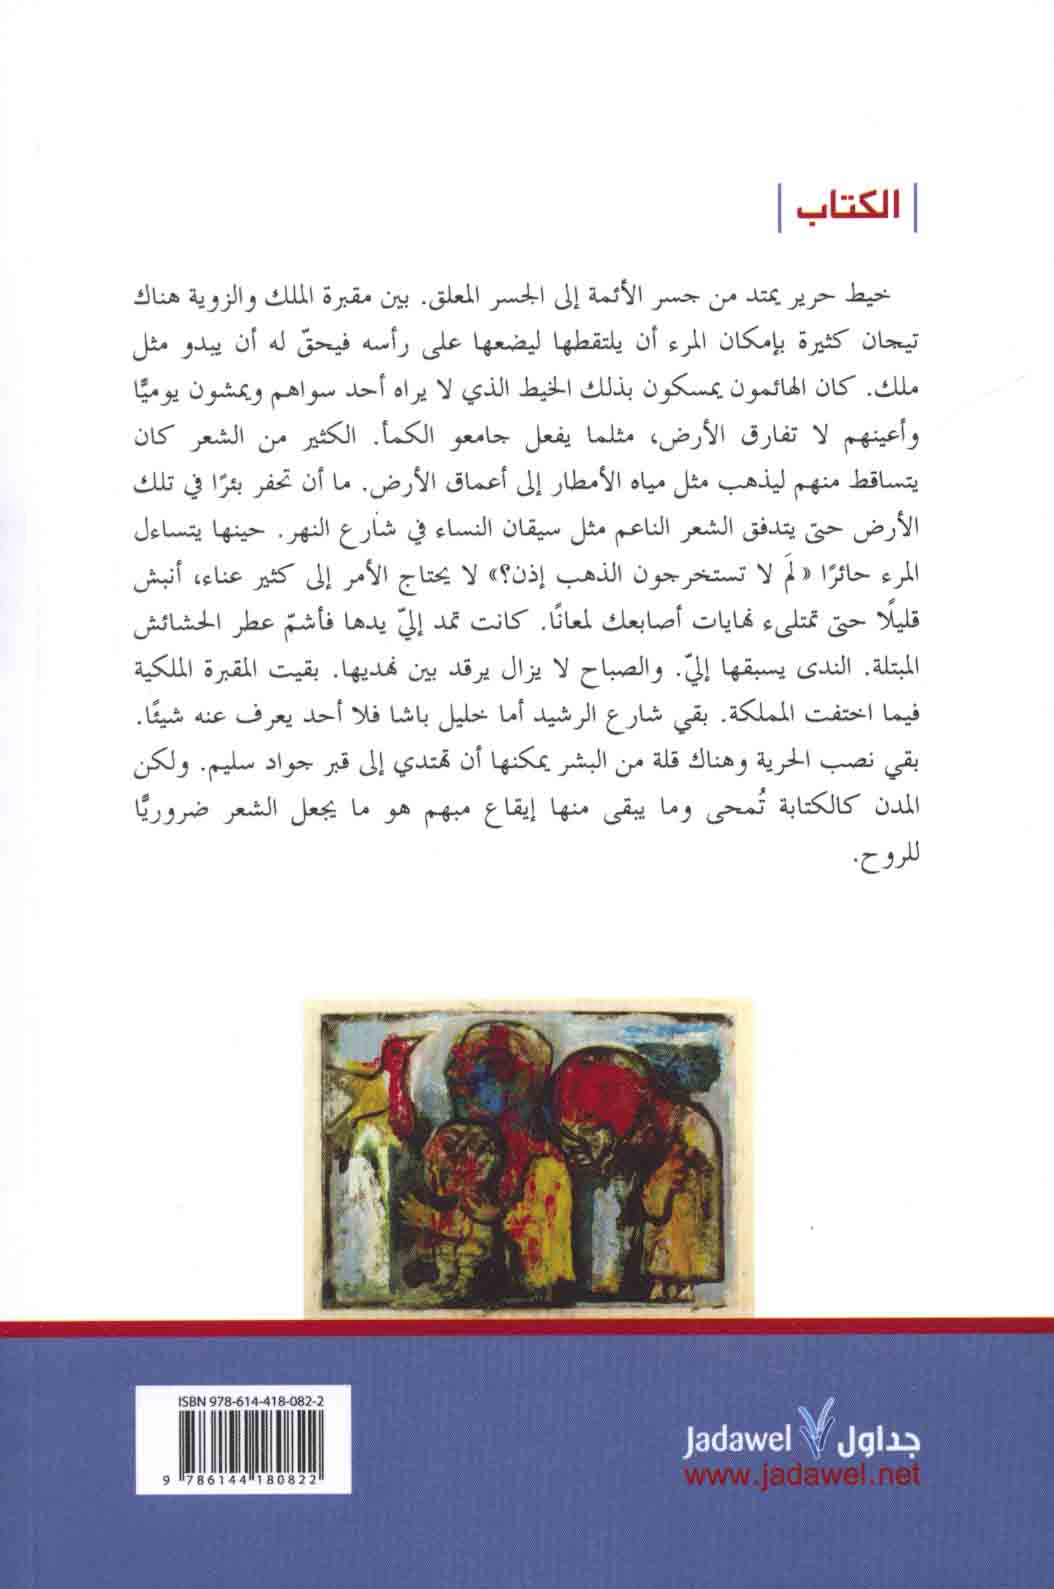 الكتاب
خيط حرير يمتد من جسر الأئمة إلى الجسر المعلق. بين مقبرة الملك والزوية هناك
تيجان كثيرة بإمكان المرء أن يلتقطها ليضعها على رأسه فيحقّ له أن يبدو مثل
ملك. كان الهائمون يمسكون بذلك الخيط الذي لا يراه أحد سواهم ويمشون يوميًّا
وأعينهم لا تفارق الأرض، مثلما يفعل جامعو الكمأ. الكثير من الشعر كان
يتساقط منهم ليذهب مثل مياه الأمطار إلى أعماق الأرض. ما أن تحفر بئرًا في تلك
الأرض حتى يتدفق الشعر الناعم مثل سيقان النساء في شارع النهر. حينها يتساءل
المرء حائرًا «لَم لا تستخرجون الذهب إذن؟» لا يحتاج الأمر إلى كثير عناء، أنبش
قليلًا حتى تمتلىء نهايات أصابعك لمعانًا. كانت تمد إليّ يدها فأشمّ عطر الحشائش
المبتلة. الندى يسبقها إليّ. والصباح لا يزال يرقد بين نهديها. بقيت المقبرة الملكية
فيما اختفت المملكة. بقي شارع الرشيد أما خليل باشا فلا أحد يعرف عنه شيئًا.
بقي نصب الحرية وهناك قلة من البشر يمكنها أن تهتدي إلى قبر جواد سليم. ولكن
المدن كالكتابة تُمحى وما يبقى منها إيقاع مبهم هو ما يجعل الشعر ضروريًّا
للروح.
ISBN 978-614-418-082-2
9 786144 180822
جداول Jadawel
www.jadawel.net